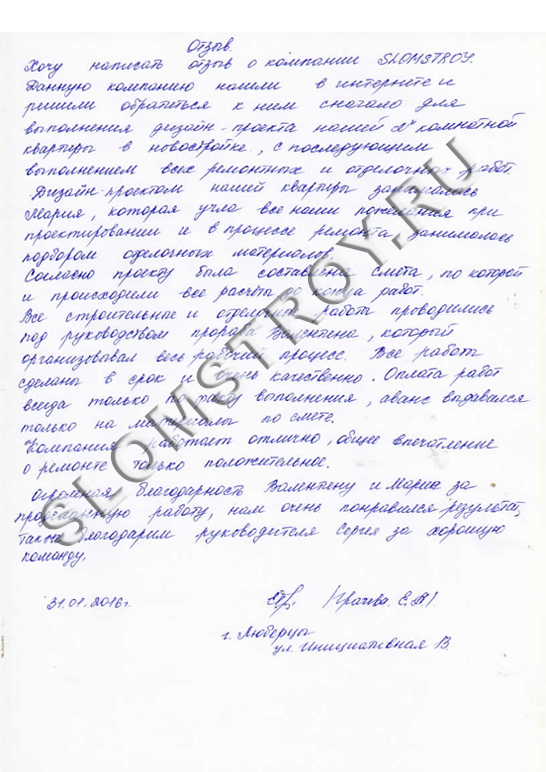 Отзыв.
Хочу написать отзыв о компании SLOMSTROY.
Данную компанию нашли в интернете и
решили обратиться к ним сначало для
выполнения дизайн-проекта нашей 2х комнатной
квартиры в новостройке, с последующим
выполнением всех ремонтных и отделочных работ.
Дизайн-проектом нашей квартиры занималась
Мария, которая учла все наши пожелания при
проектировании и в процессе ремонта занималось
подбором отделочных материалов.
Согласно проекту была составлена смета, по которой
и происходили все расчёты до конца работ.
Все строительные и отделочные работы проводились
под руководством прораба Валентина, который
организовывал весь рабочий процесс. Все работы
сделаны в срок и очень качественно. Оплата работ
всегда только по факту выполнения, аванс выдавался
только на материалы по смете.
Компания работает отлично, общее впечатление
о ремонте только положительное.
Огромная благодарность Валентину и Марие за
проделанную работу, нам очень понравился результат,
также благодарим руководителя Сергея за хорошую
команду.
31.01.2016г.
г. Люберцы
ул. Инициативная
SLOMSTROY.RU